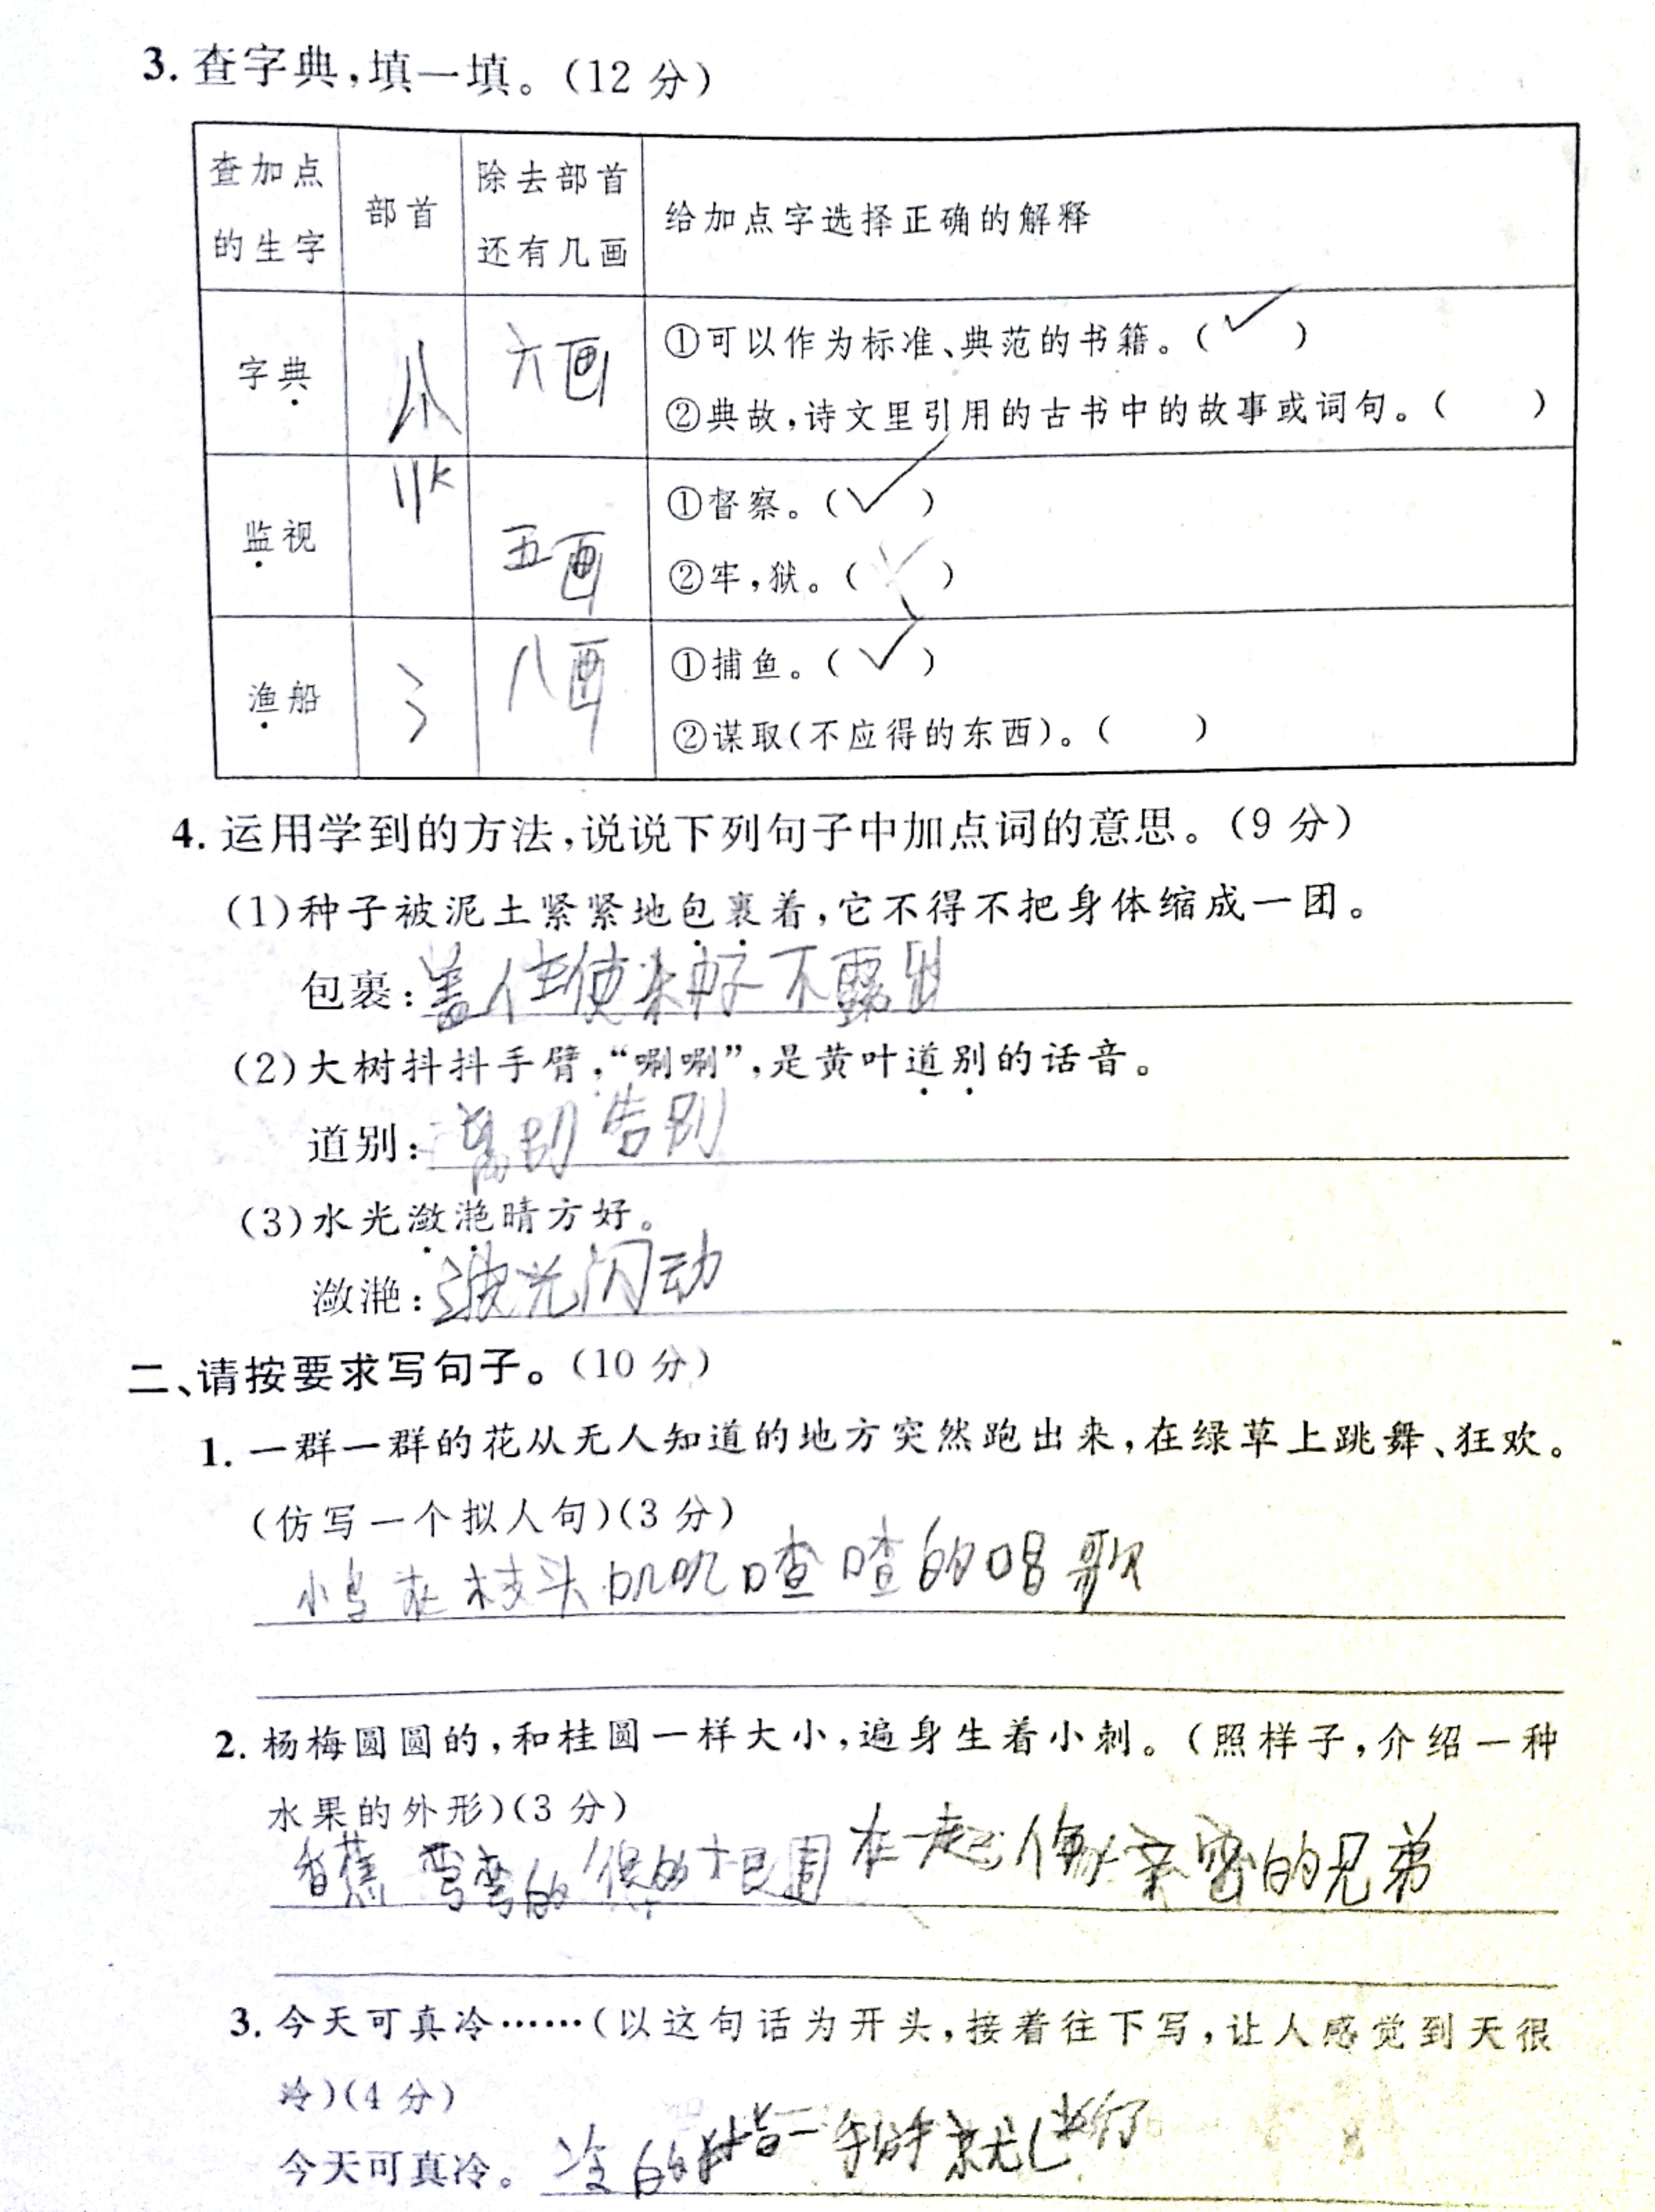 3. 查字典,填一填。(12 分)
查加点的生字 部首 除去部首还有几画 给加点字选择正确的解释
字典 八 六画 ①可以作为标准、典范的书籍。( ✓ )
②典故,诗文里引用的古书中的故事或词句。( )
监视 五画 ①督察。( ✓ )
②牢,狱。( )
渔船 氵 八画 ①捕鱼。( ✓ )
②谋取(不应得的东西)。( )
4. 运用学到的方法,说说下列句子中加点词的意思。(9 分)
(1)种子被泥土紧紧地包裹着,它不得不把身体缩成一团。
包裹:盖住使种子不露出
(2)大树抖抖手臂,“唰唰”,是黄叶道别的话音。
道别:离别 告别
(3)水光潋滟晴方好。
潋滟:波光闪动
二、请按要求写句子。(10 分)
1. 一群一群的花从无人知道的地方突然跑出来,在绿草上跳舞、狂欢。
(仿写一个拟人句)(3 分)
小鸟在枝头叽叽喳喳的唱歌
2. 杨梅圆圆的,和桂圆一样大小,遍身生着小刺。(照样子,介绍一种
水果的外形)(3 分)
香蕉弯弯的 在一起像亲密的兄弟
3. 今天可真冷……(以这句话为开头,接着往下写,让人感觉到天很
冷)(4 分)
今天可真冷。